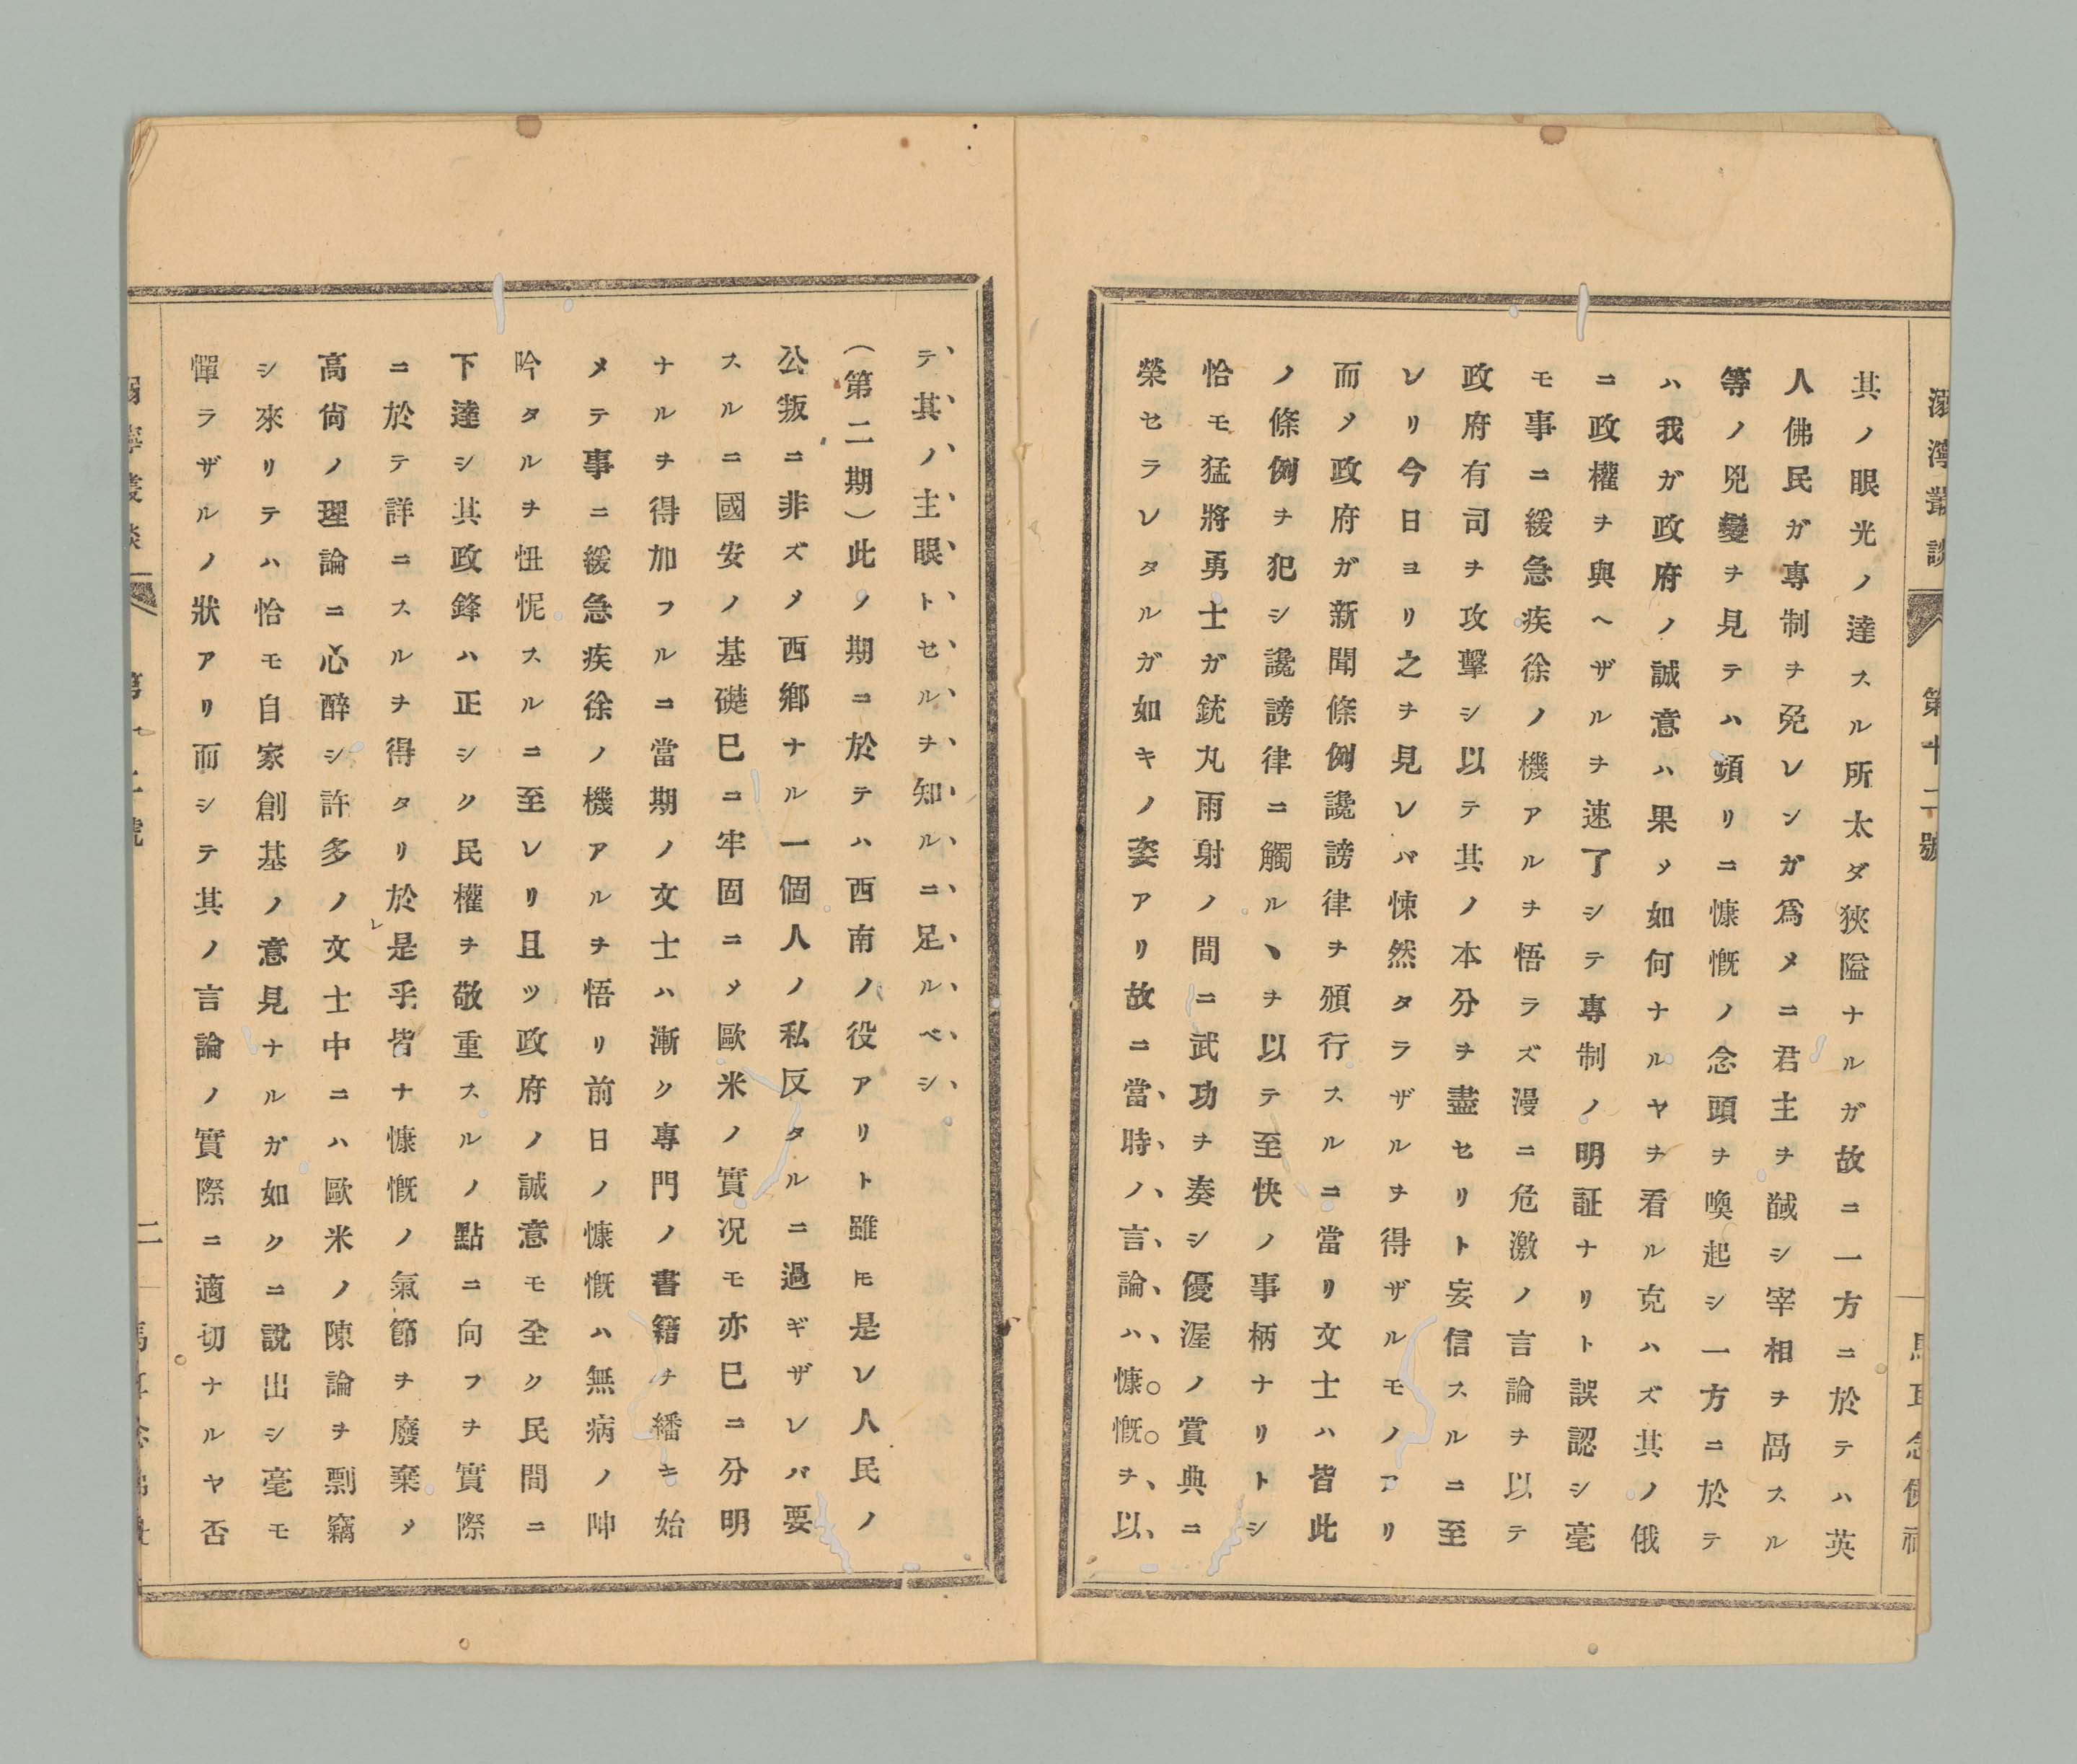 第十二號
其ノ眼光ノ達スル所太ダ狹隘ナルガ故ニ一方ニ於テハ英
人佛民ガ専制ヲ免レンガ爲メニ君主ヲ馘シ宰相ヲ咼スル
等ノ兇變ヲ見テハ頻リニ慷慨ノ念頭ヲ喚起シ一方ニ於テ
ハ我ガ政府ノ誠意ハ果〆如何ナルヤヲ看ル克ハズ其ノ俄
ニ政權ヲ與ヘザルヲ速了シテ專制ノ明証ナリト誤認シ毫
モ事ニ緩急疾徐ノ機アルヲ悟ラズ漫ニ危激ノ言論ヲ以テ
政府有司ヲ攻擊シ以テ其ノ本分ヲ盡セリト妄信スルニ至
レリ今日ヨリ之ヲ見レバ悚然タラザルヲ得ザルモノアリ
而〆政府ガ新聞條例讒謗律ヲ頒行スルニ當リ文士ハ皆此
ノ條例ヲ犯シ讒謗律ニ觸ルヽヲ以テ至快ノ事柄ナリトシ
恰モ猛將勇士ガ銃丸雨射ノ間ニ武功ヲ奏シ優渥ノ賞典ニ
榮セラレタルガ如キノ姿アリ故ニ當時ノ言論ハ慷慨ヲ以
テ其ノ主眼トセルヲ知ルニ足ルベシ
（第二期）此ノ期ニ於テハ西南ノ役アリト雖モ是レ人民ノ
公叛ニ非ズ〆西鄉ナル一個人ノ私反タルニ過ギザレバ要
スルニ國安ノ基礎巳ニ牢固ニ〆歐米ノ實况モ亦巳ニ分明
ナルヲ得加フルニ當期ノ文士ハ漸ク專門ノ書籍ヲ繙キ始
メテ事ニ緩急疾徐ノ機アルヲ悟リ前日ノ慷慨ハ無病ノ呻
吟タルヲ忸怩スルニ至レリ且ツ政府ノ誠意モ全ク民間ニ
下達シ其政鋒ハ正シク民權ヲ敬重スルノ點ニ向フヲ實際
ニ於テ詳ニスルヲ得タリ於是乎皆ナ慷慨ノ氣節ヲ廢棄〆
高尙ノ理論ニ心醉シ許多ノ文士中ニハ歐米ノ陳論ヲ剽竊
シ來リテハ恰モ自家創基ノ意見ナルガ如クニ說出シ毫モ
憚ラザルノ狀アリ而シテ其ノ言論ノ實際ニ適切ナルヤ否
二